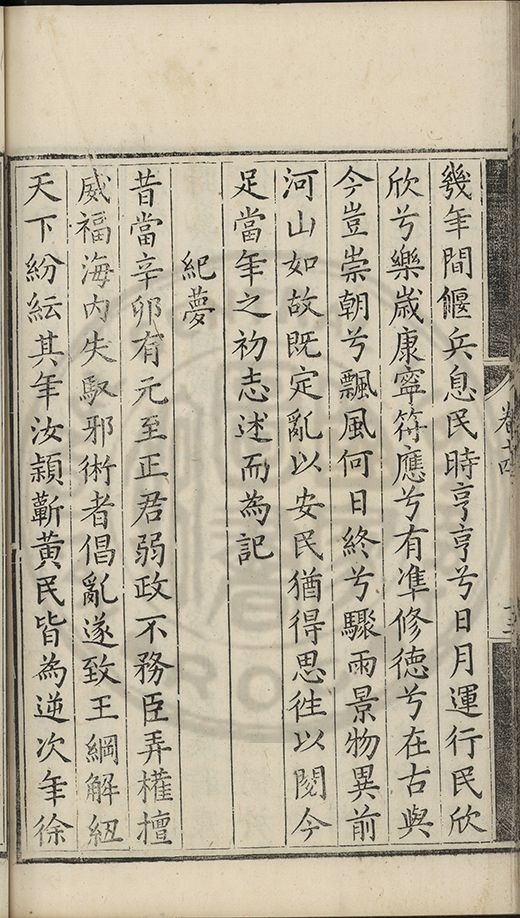 幾年間偃兵息民時亨亨兮日月運行民欣
欣兮樂歲康寧符應兮有凖修德兮在古與
今豈崇朝兮飄風何日終兮驟雨景物異前
河山如故既定亂以安民猶得思徃以閱今
足當年之初志述而為記
紀夢
昔當辛卯有元至正君弱政不務臣弄權擅
威福海内失馭邪術者倡亂遂致王綱解紐
天下紛紜其年汝頴蘄黄民皆為逆次年徐
卷十四